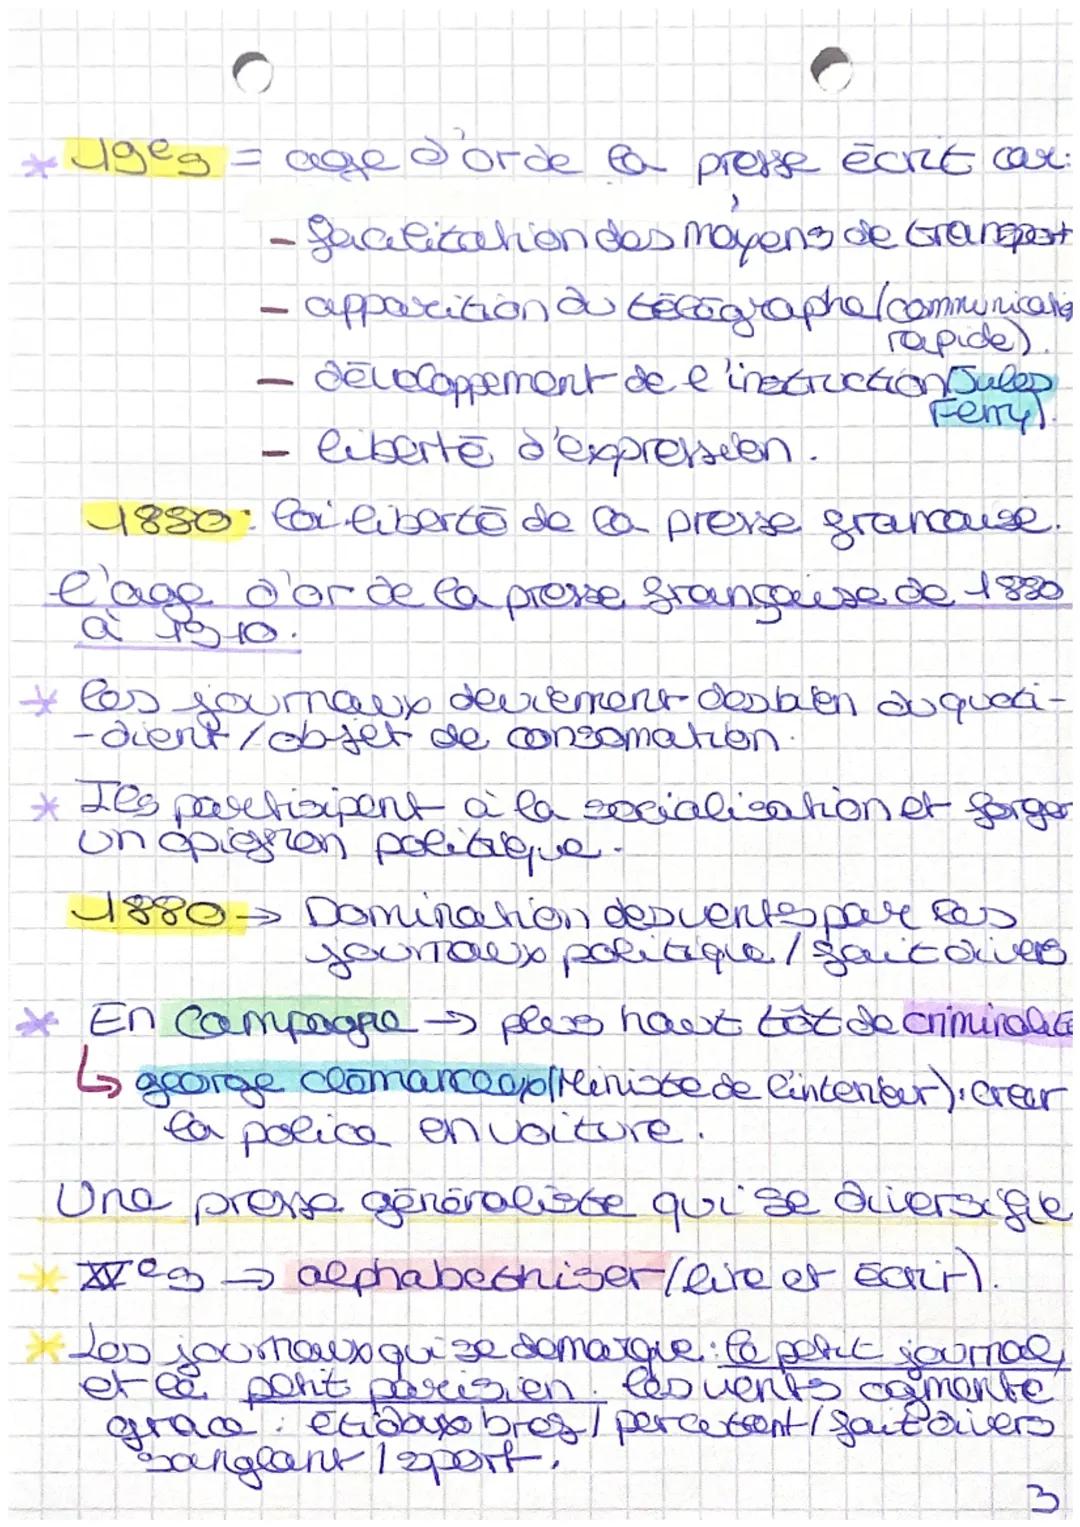 * 19es = age d'or de la presse écrit car:
- facilitation des moyens de transport
- apparition du télégraphe/(communicatio
rapide).
- développement de l'instruction (Jules
Ferry).
- liberté d'expression.
1880: loi liberté de la presse francaise.
l'age d'or de la presse française de 1880
à 1910.
* les journaux deviennent des bien du quoti-
-dient/objet de consomation.
* Ils partisipent à la socialisation et forger
un opignion politique.
1880 → Domination des vents par les
journaux politique / fait divers
* En Campagne → plus haut tôt de criminalité
↳ george clémanceau (Ministe de l'interieur): créer
la police en voiture.
Une presse généraliste qui se diversifie
* XVes → alphabethiser (lire et écrir).
* Les journaux qui se demarque: le petit journal,
et le petit parisien. les vents agmente
grace: étidaux brefs / percutent / fait divers
sanglant / sport.
3